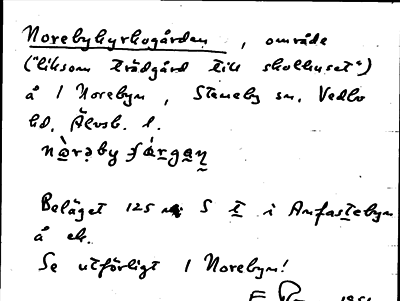 Norebykyrkogården, område
("liksom trädgård till skolhuset")
å 1 Norebyn, Steneby sn, Vedbo
hd, Älvsb. l.
Beläget 125 m S t i Anfastebyn
å ek.
Se utförligt 1 Norebyn!